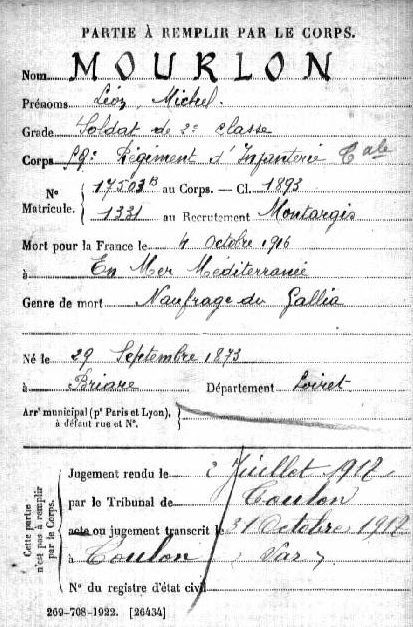 PARTIE À REMPLIR PAR LE CORPS.
Nom MOURLON
Prénoms Léon, Michel.
Grade Soldat de 2e classe
Corps 59e Régiment d'Infanterie Cale
No 17503B au Corps. — Cl. 1893
Matricule. 1331 au Recrutement Montargis
Mort pour la France le 4 octobre 1916
à En Mer Méditerranée
Genre de mort Naufrage du Gallia
Né le 29 Septembre 1873
à Briare Département Loiret
Arrt municipal (pr Paris et Lyon),
à défaut rue et No.
Cette partie n'est pas à remplir par le Corps.
Jugement rendu le 2 Juillet 1917
par le Tribunal de Toulon
acte ou jugement transcrit le 31 Octobre 1917
à Toulon Var
No du registre d'état civil
269-708-1922. [26434]